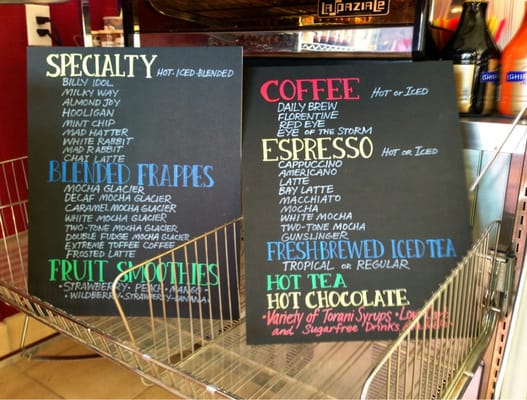 LAPAZIALE
SPECIALTY HOT-ICED-BLENDED
BILLY IDOL
MILKY WAY
ALMOND JOY
HOOLIGAN
MINT CHIP
MAD HATTER
WHITE RABBIT
MAD RABBIT
CHAI LATTE
BLENDED FRAPPES
MOCHA GLACIER
DECAF MOCHA GLACIER
CARAMEL MOCHA GLACIER
WHITE MOCHA GLACIER
TWO-TONE MOCHA GLACIER
DOUBLE FUDGE MOCHA GLACIER
EXTREME TOFFEE COFFEE
FROSTED LATTE
FRUIT SMOOTHIES
• STRAWBERRY • PEACH • MANGO •
• WILDBERRY • STRAWBERRY-BANANA •
COFFEE HOT OR ICED
DAILY BREW
FLORENTINE
RED EYE
EYE OF THE STORM
ESPRESSO HOT OR ICED
CAPPUCCINO
AMERICANO
LATTE
BAY LATTE
MACCHIATO
MOCHA
WHITE MOCHA
TWO-TONE MOCHA
GUNSLINGER
FRESHBREWED ICED TEA
TROPICAL OR REGULAR
HOT TEA
HOT CHOCOLATE
• Variety of Torani Syrups • Low Carb
and Sugarfree Drinks